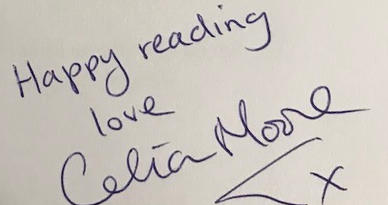 Happy reading
love
Celia Moore
x